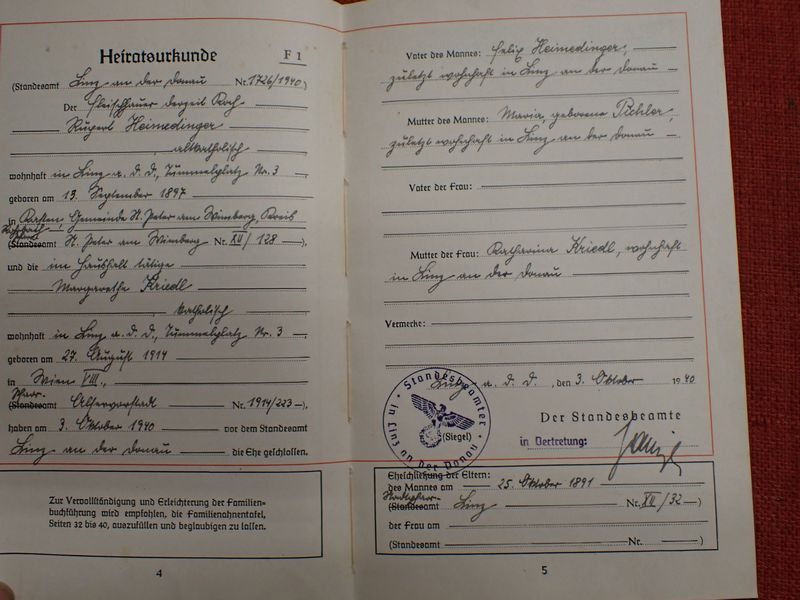 Heiratsurkunde F 1
(Standesamt Linz an der Donau Nr. 1726/1940)
Der Fleischhauer derzeit Koch
Rupert Heimedinger
, altkatholisch
wohnhaft in Linz a. d. D., Tummelplatz Nr. 3
geboren am 13. September 1897
in Gemeinde St. Peter am Wimberg, Kreis
(Standesamt St. Peter am Wimberg Nr. XII/128)
und die im Haushalt tätige
Margarethe Kriedl
, katholisch
wohnhaft in Linz a. d. D., Tummelplatz Nr. 3
geboren am 27. August 1914
in Wien VIII.,
Pfarr-
(Standesamt Alservorstadt Nr. 1914/223),
haben am 3. Oktober 1940 vor dem Standesamt
Linz an der Donau die Ehe geschlossen.
Zur Vervollständigung und Erleichterung der Familien-
buchführung wird empfohlen, die Familienahnentafel,
Seiten 32 bis 40, auszufüllen und beglaubigen zu lassen.
4
Vater des Mannes: Felix Heimedinger,
zuletzt wohnhaft in Linz an der Donau
Mutter des Mannes: Maria, geborene Pichler,
zuletzt wohnhaft in Linz an der Donau
Vater der Frau:
Mutter der Frau: Katharina Kriedl, wohnhaft
in Linz an der Donau
Vermerke:
Linz a. d. D., den 3. Oktober 1940
Standesbeamter
in Linz an der Donau
(Siegel)
Der Standesbeamte
in Vertretung:
Eheschließung der Eltern:
des Mannes am 25. Oktober 1891
Stadtpfarr-
(Standesamt Linz Nr. XII/32)
der Frau am
(Standesamt Nr. )
5